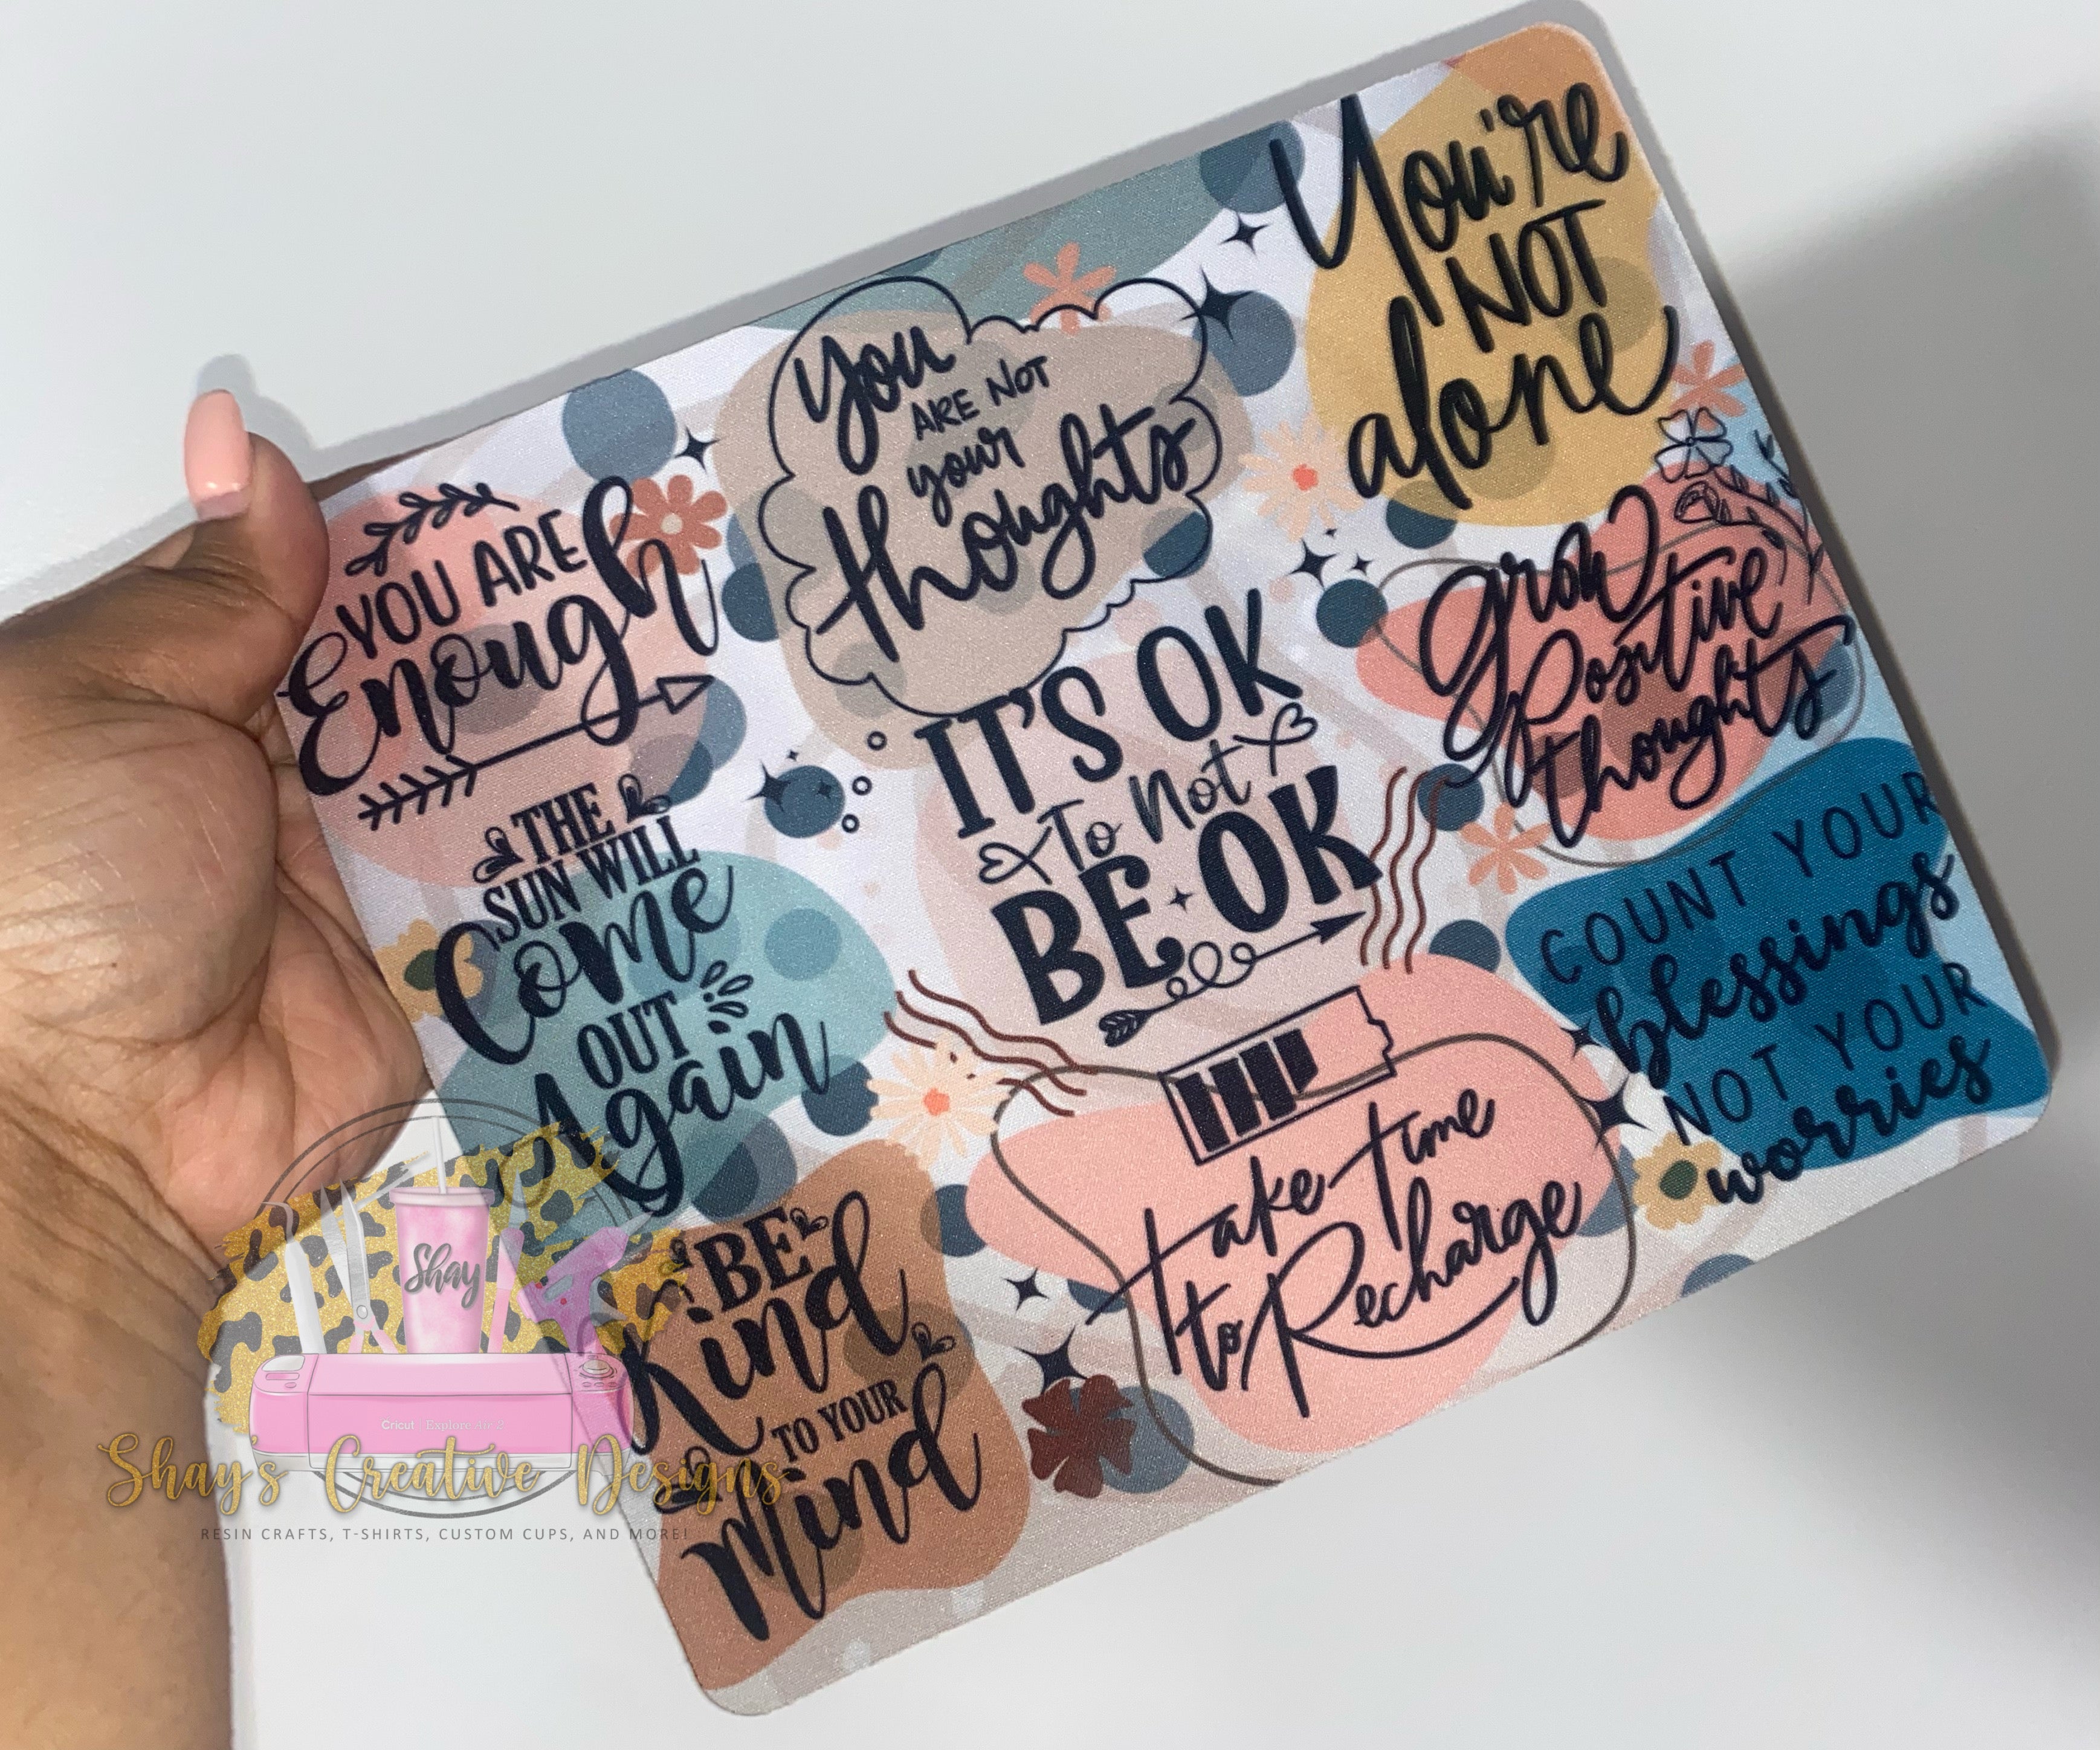 YOU ARE
Enough
You
ARE NOT
your
thoughts
You're
NOT
alone
THE
SUN WILL
Come
OUT
Again
IT'S OK
To Not
BE OK
Grow
Positive
thoughts
BE
Kind
TO YOUR
Mind
take time
to Recharge
COUNT YOUR
blessings
NOT YOUR
worries
Shay
Cricut Explore Air 2
Shay's Creative Designs
RESIN CRAFTS, T-SHIRTS, CUSTOM CUPS, AND MORE!